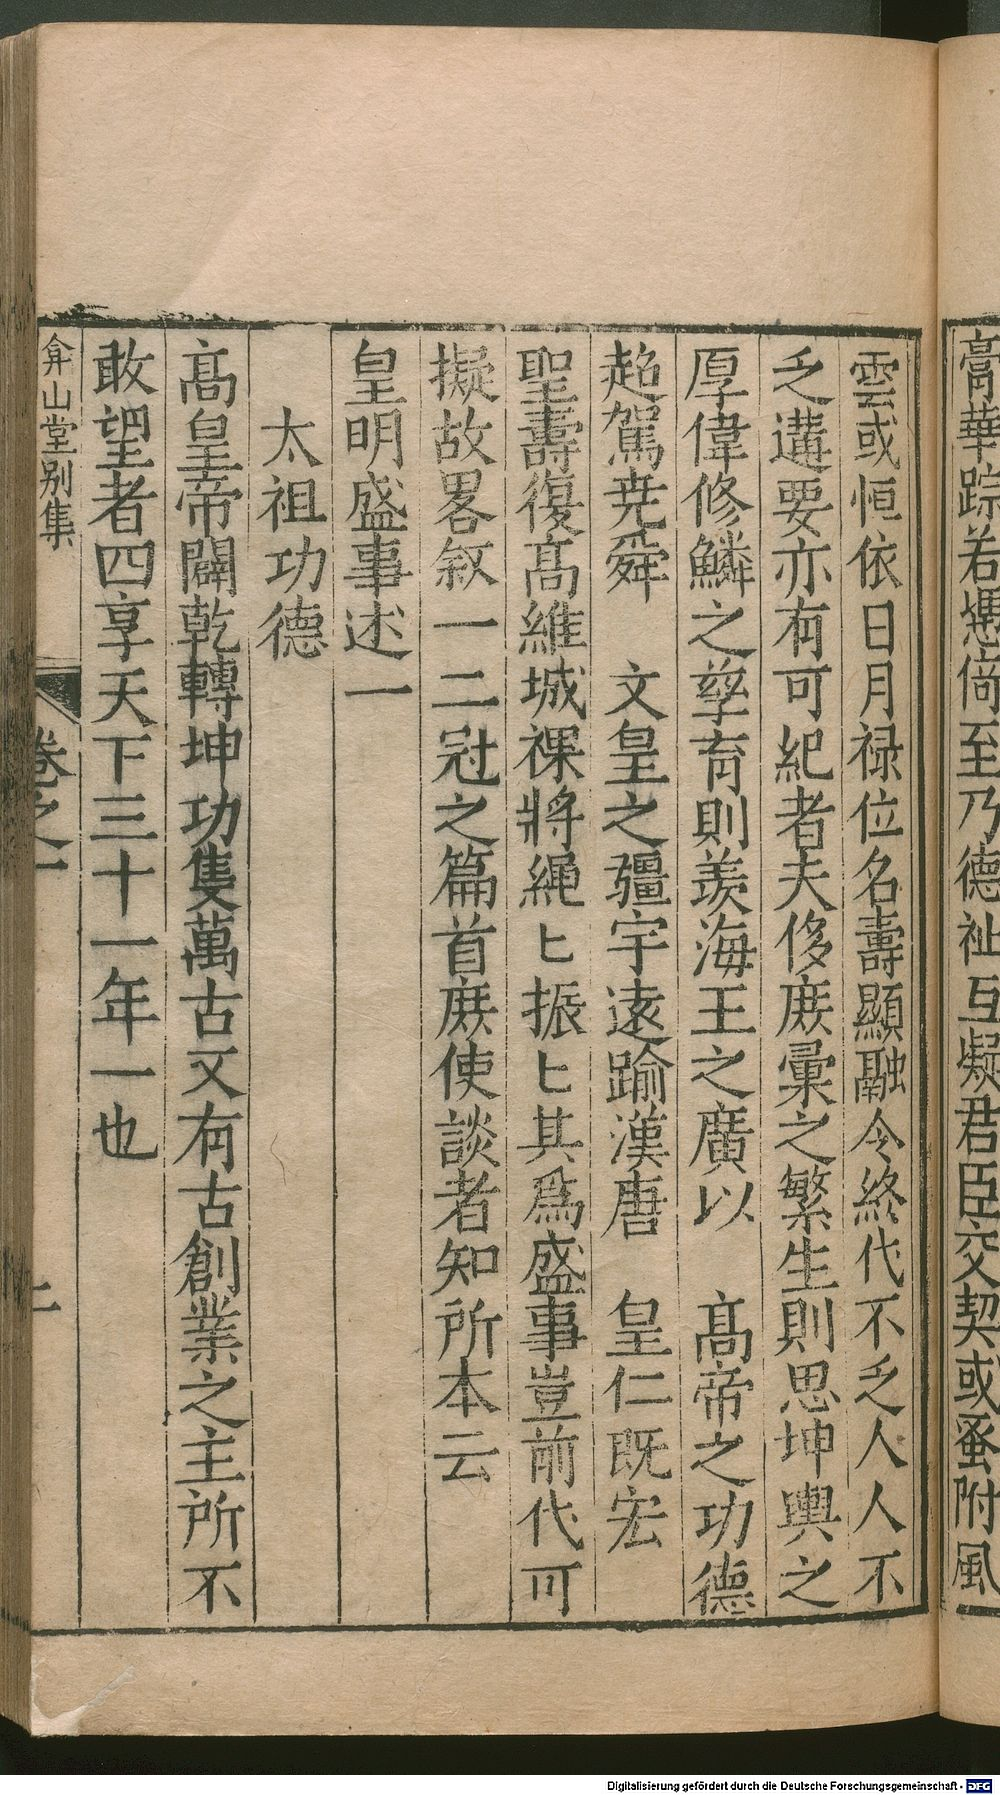 膏華踪若慿倚至乃德祉互凝君臣交契或蚤附風
雲或恒依日月禄位名壽顯融令終代不乏人人不
乏遘要亦有可紀者夫侈庶彙之繁生則思坤輿之
厚偉修鱗之孳育則羨海王之廣以　髙帝之功德
趍駕尭舜　文皇之疆宇遠踰漢唐　皇仁既宏
聖壽復髙維城祼將繩〻振〻其爲盛事豈前代可
擬故畧叙一二冠之篇首庶使談者知所本云
皇明盛事述一
太祖功德
髙皇帝闢乾轉坤功隻萬古又有古創業之主所不
敢望者四享天下三十一年一也
弇山堂别集
卷之一
二
Digitalisierung gefördert durch die Deutsche Forschungsgemeinschaft - DFG